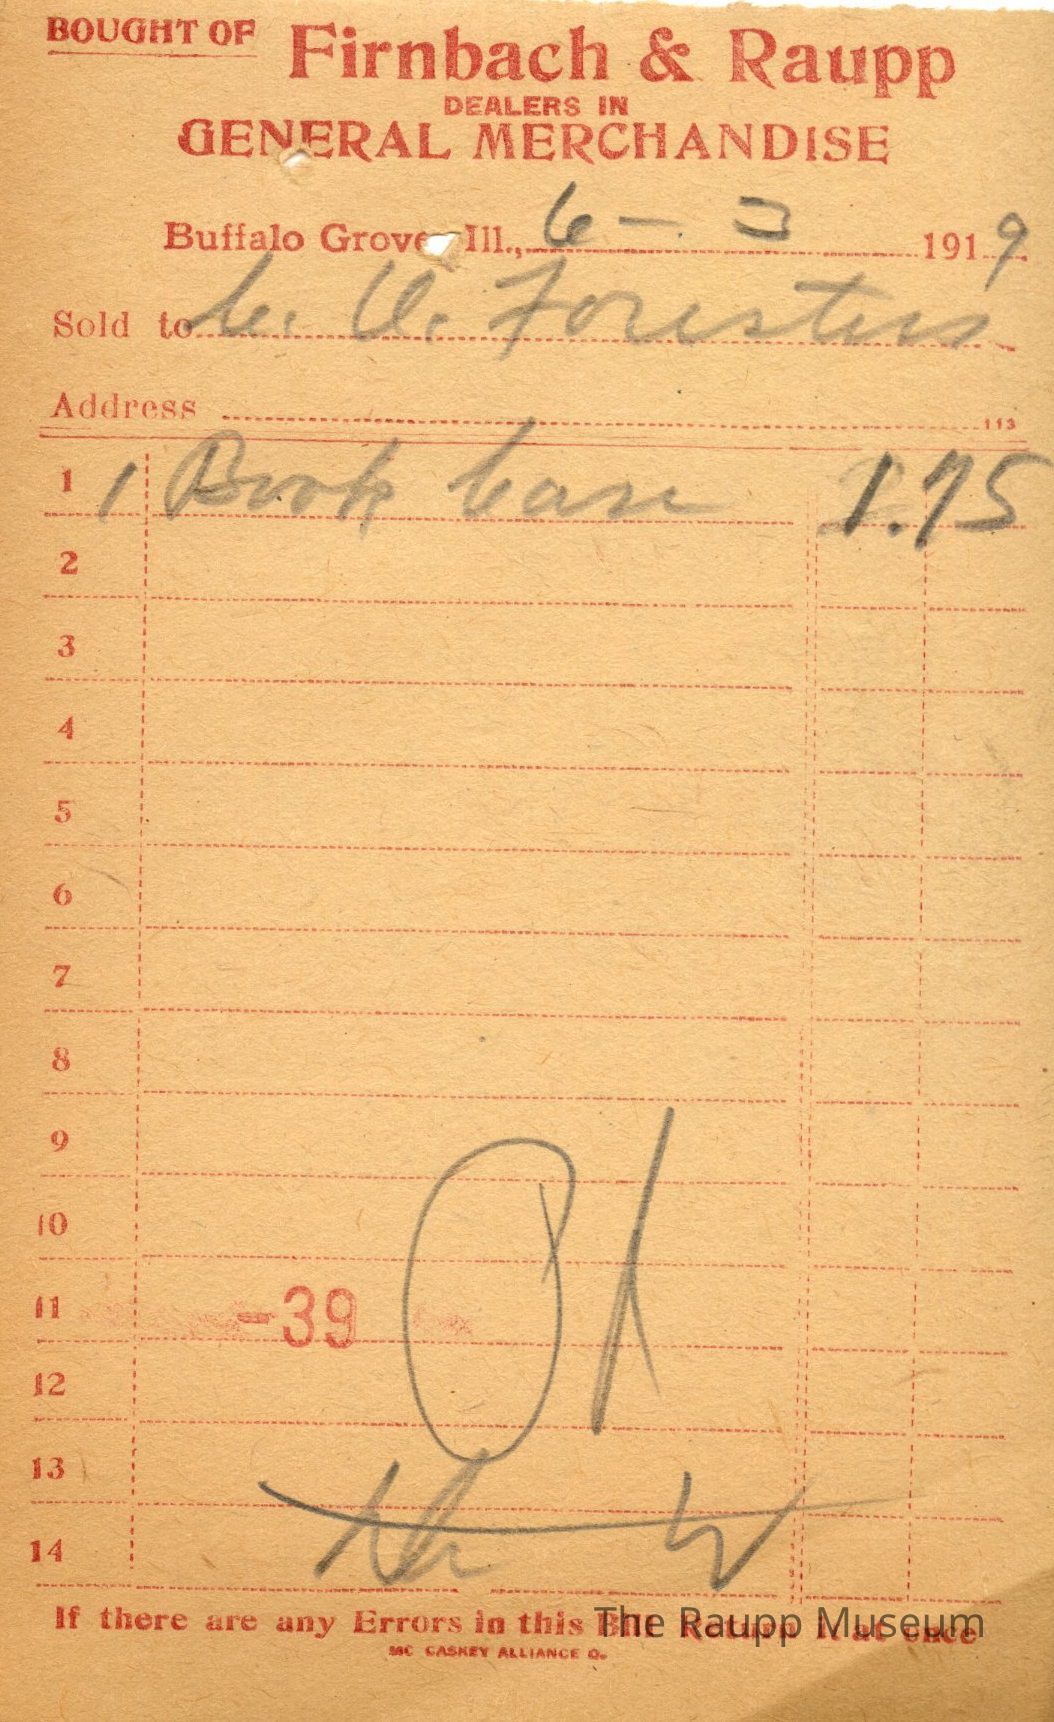 BOUGHT OF Firnbach & Raupp
DEALERS IN
GENERAL MERCHANDISE
Buffalo Grove, Ill., 6 - 3 1919
Sold to C. O. Foresters
Address
113
1 1 Book Case 1.75
2
3
4
5
6
7
8
9
10
11 -39
12
13
14
OK
If there are any Errors in this Bill Return it at once
The Raupp Museum
MC CASKEY ALLIANCE O.